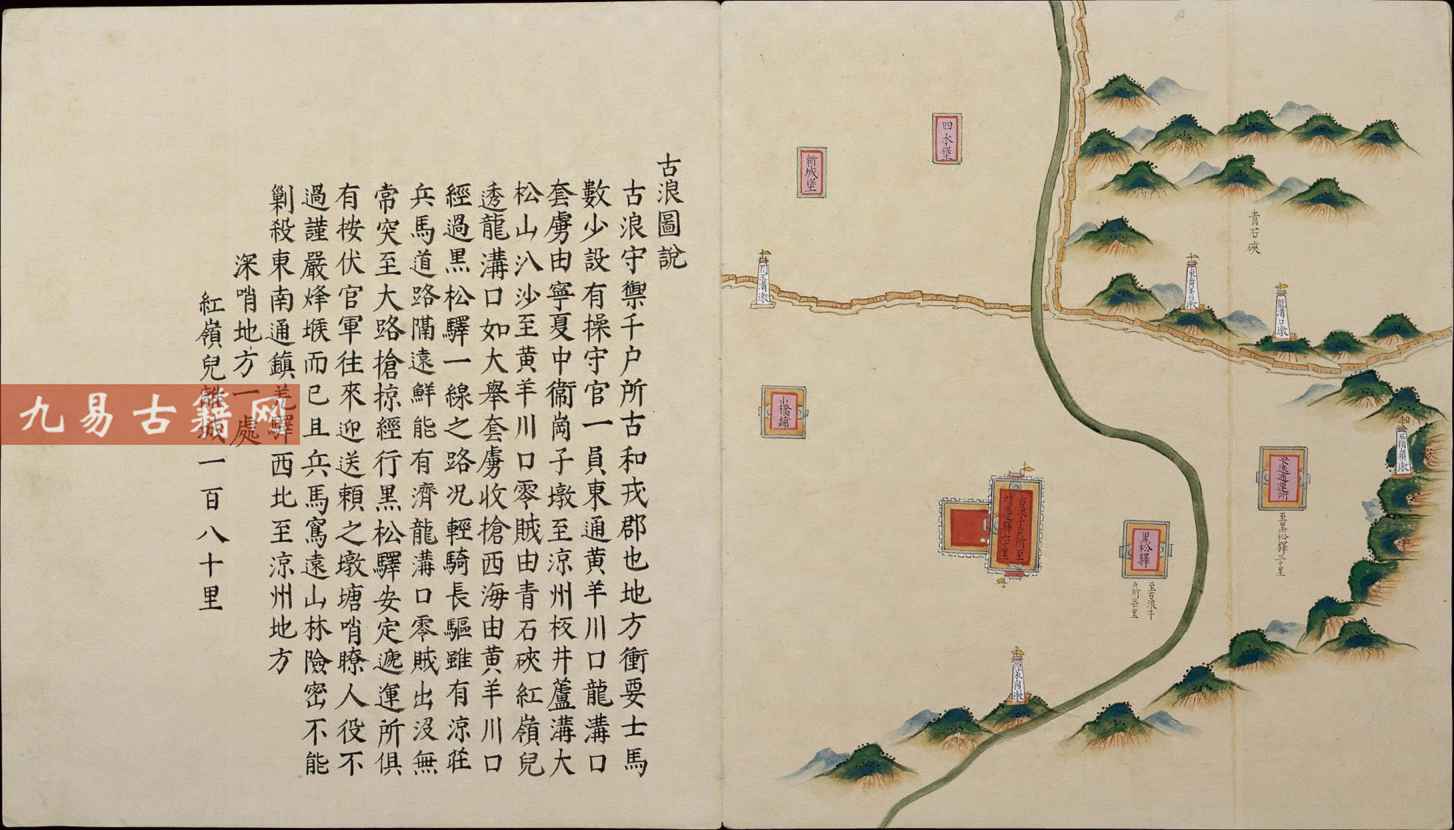 古浪圖說
古浪守禦千户所古和戎郡也地方衝要士馬
數少設有操守官一員東通黄羊川口龍溝口
套虜由寧夏中衞崗子墩至涼州校井蘆溝大
松山扒沙至黄羊川口零賊由青石硤紅嶺兒
透龍溝口如大舉套虜收搶西海由黄羊川口
經過黒松驛一線之路況輕騎長驅雖有涼莊
兵馬道路隔遠鮮能有濟龍溝口零賊出沒無
常突至大路搶掠經行黒松驛安定遞運所俱
有按伏官軍往來迎送頼之墩塘哨瞭人役不
過謹嚴烽堠而已且兵馬寫遠山林險密不能
剿殺東南通鎮羌驛西北至涼州地方
深哨地方一處
紅嶺兒離城一百八十里
九易古籍网
四水堡
新城堡
青石硤
龍溝口墩
黒松驛
至古浪千
至黒松驛三十里